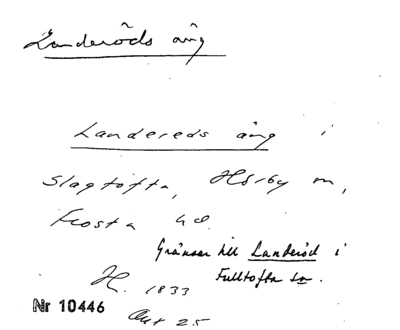 Landeröds äng
Landereds äng i
Slagtofta, Hörby sn,
Frosta hd.
Gränsar till Landeröd i
Fulltofta sn.
H. 1833
Nr 10446
Akt 25